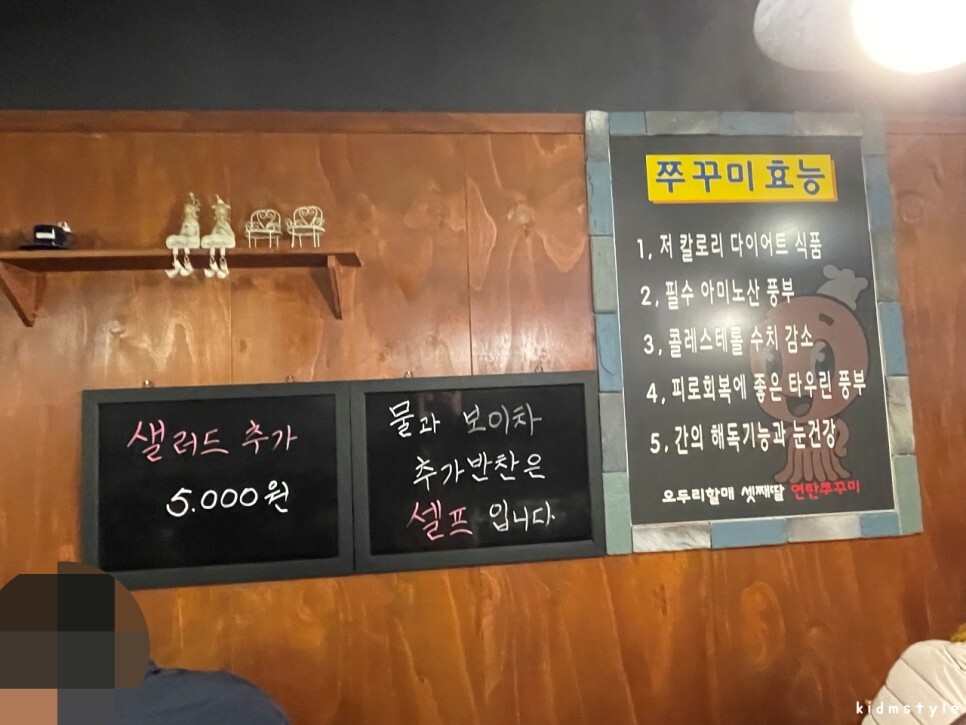 샐러드 추가
5.000원
물과 보이차
추가반찬은
셀프 입니다.
쭈꾸미효능
1, 저 칼로리 다이어트 식품
2, 필수 아미노산 풍부
3, 콜레스테롤 수치 감소
4, 피로회복에 좋은 타우린 풍부
5, 간의 해독기능과 눈건강
오두리할매 셋째딸 연탄쭈꾸미
kidmstyle